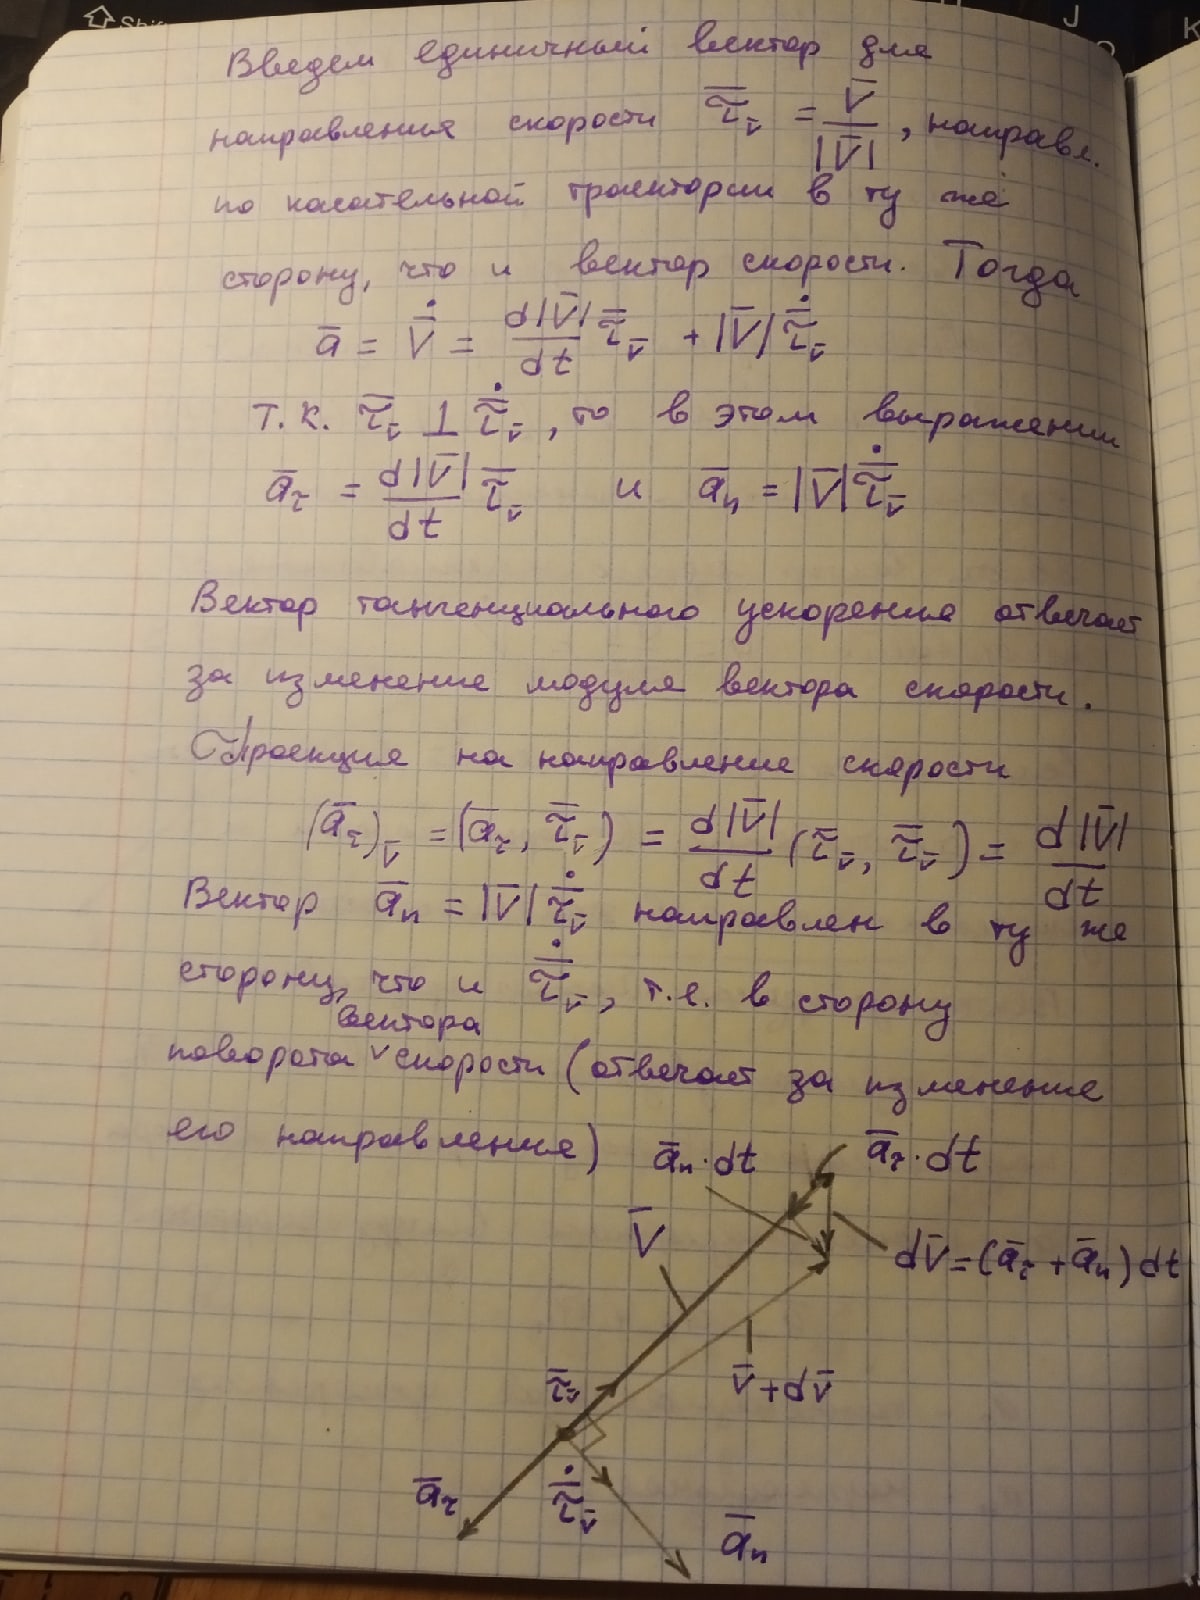 Shift
J
K
Введем единичный вектор для
направления скорости τ̅_v̅ = V̅/|V̅|, направл.
по касательной траектории в ту же
сторону, что и вектор скорости. Тогда
a̅ = V̅̇ = d|V̅|/dt τ̅_v̅ + |V̅| τ̅̇_v̅
Т.к. τ̅_v̅ ⊥ τ̅̇_v̅, то в этом выражении
a̅_τ = d|V̅|/dt τ̅_v̅ и a̅_n = |V̅| τ̅̇_v̅
Вектор тангенциального ускорения отвечает
за изменение модуля вектора скорости.
Проекция на направление скорости
(a̅_τ)_v̅ = (a̅_τ, τ̅_v̅) = d|V̅|/dt (τ̅_v̅, τ̅_v̅) = d|V̅|/dt
Вектор a̅_n = |V̅| τ̅̇_v̅ направлен в ту же
сторону, что и τ̅̇_v̅, т.е. в сторону
вектора
поворота ˅ скорости (отвечает за изменение
его направления)
a̅_n·dt
a̅_τ·dt
V̅
dV̅ = (a̅_τ + a̅_n) dt
τ̅_v̅
V̅ + dV̅
a̅_τ
τ̅̇_v̅
a̅_n